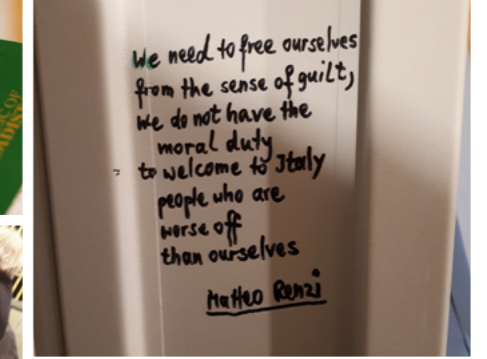 We need to free ourselves
from the sense of guilt,
we do not have the
moral duty
to welcome to Italy
people who are
worse off
than ourselves
Matteo Renzi